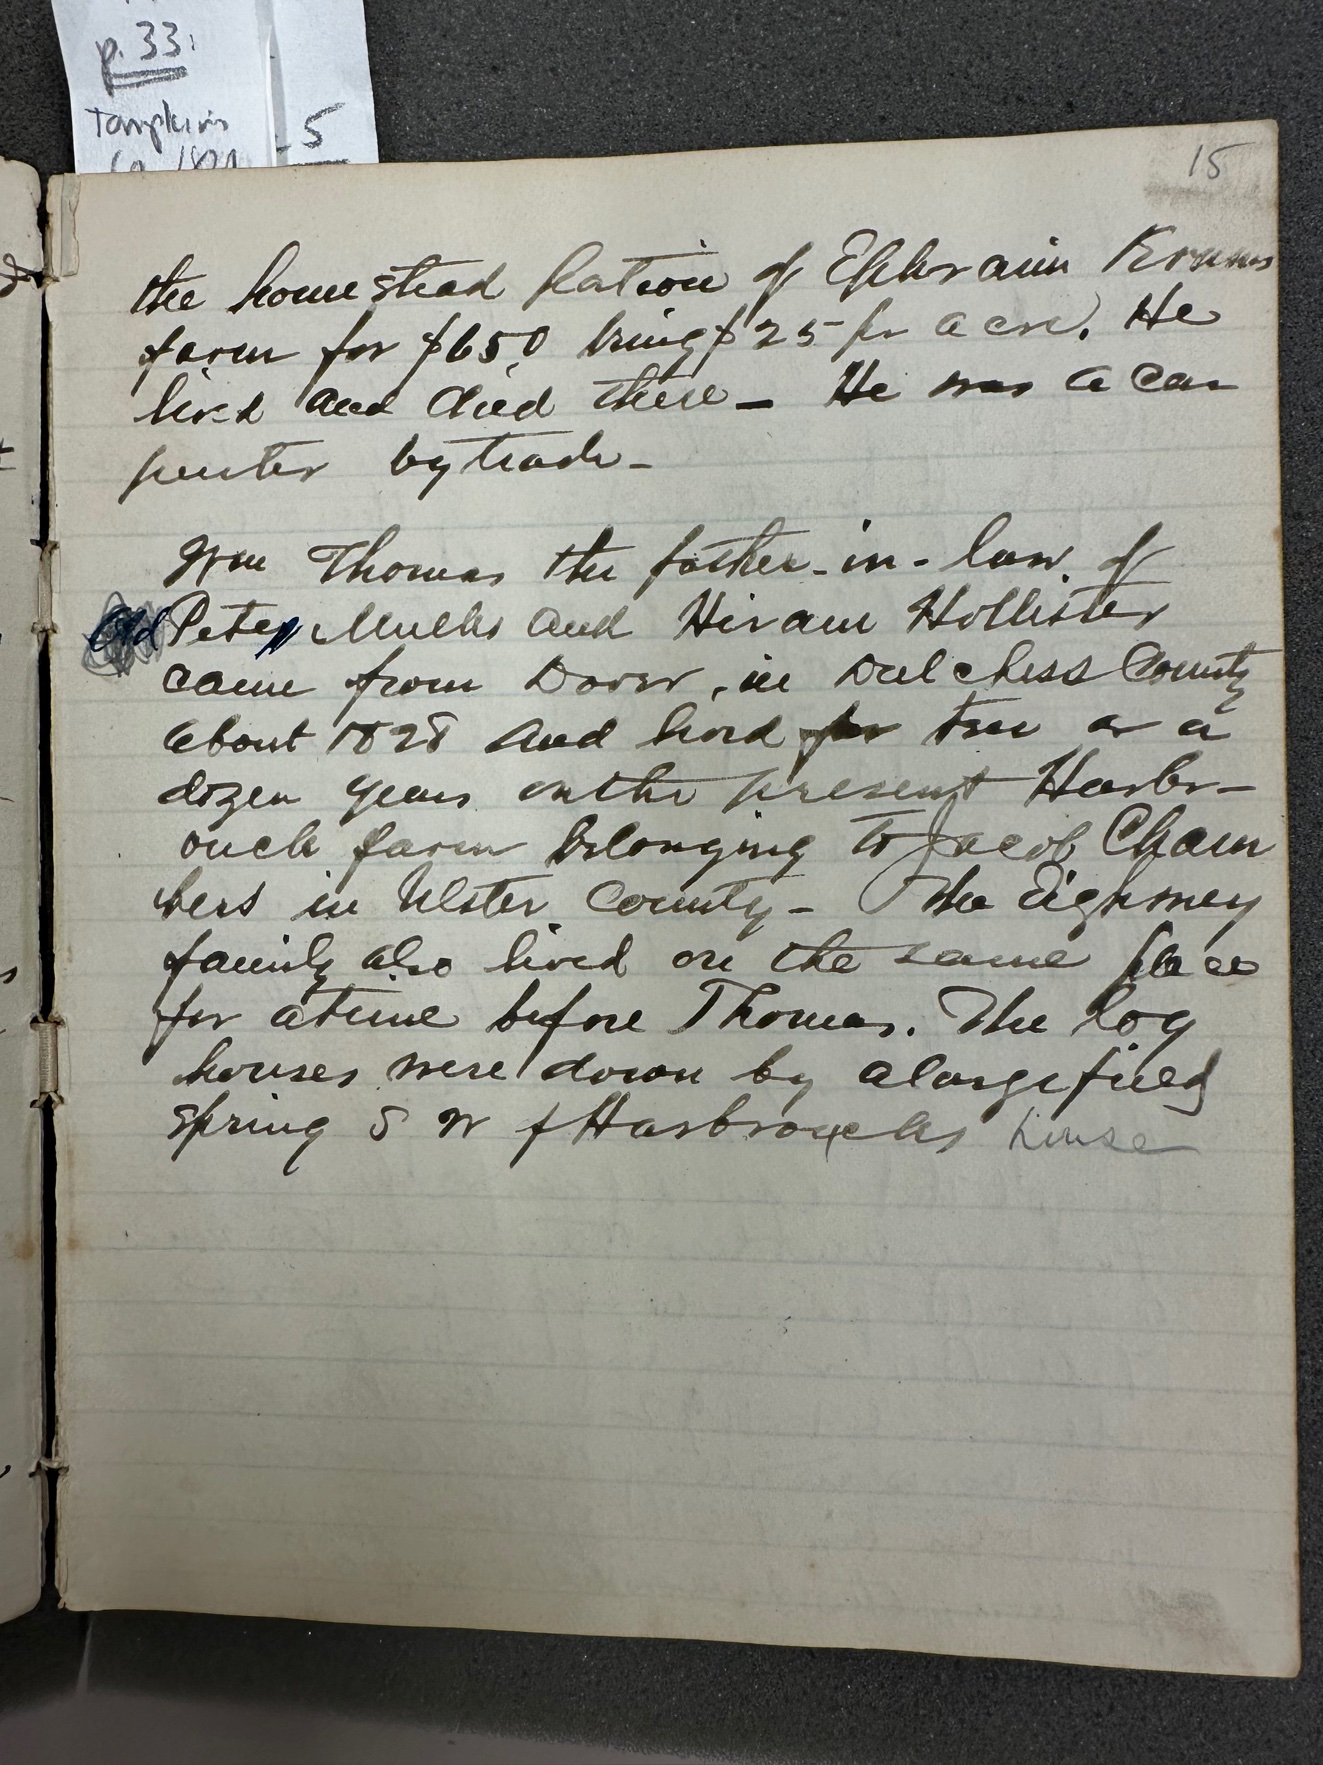 p. 33
Tompkins
Co
5
15
the homestead portion of Ephraim Krums
farm for $650 being $25 pr acre. He
lived and died there – He was a car
penter by trade –
Wm Thomas the father-in-law of
Old Peter Mulks and Hiram Hollister
came from Dover, in Dutchess County
about 1828 and lived for ten or a
dozen years on the present Hasbr–
ouck farm belonging to Jacob Cham
bers in Ulster County – The Eighmey
family also lived on the same place
for a time before Thomas. The log
houses were down by a large field
spring S W of Hasbroucks house